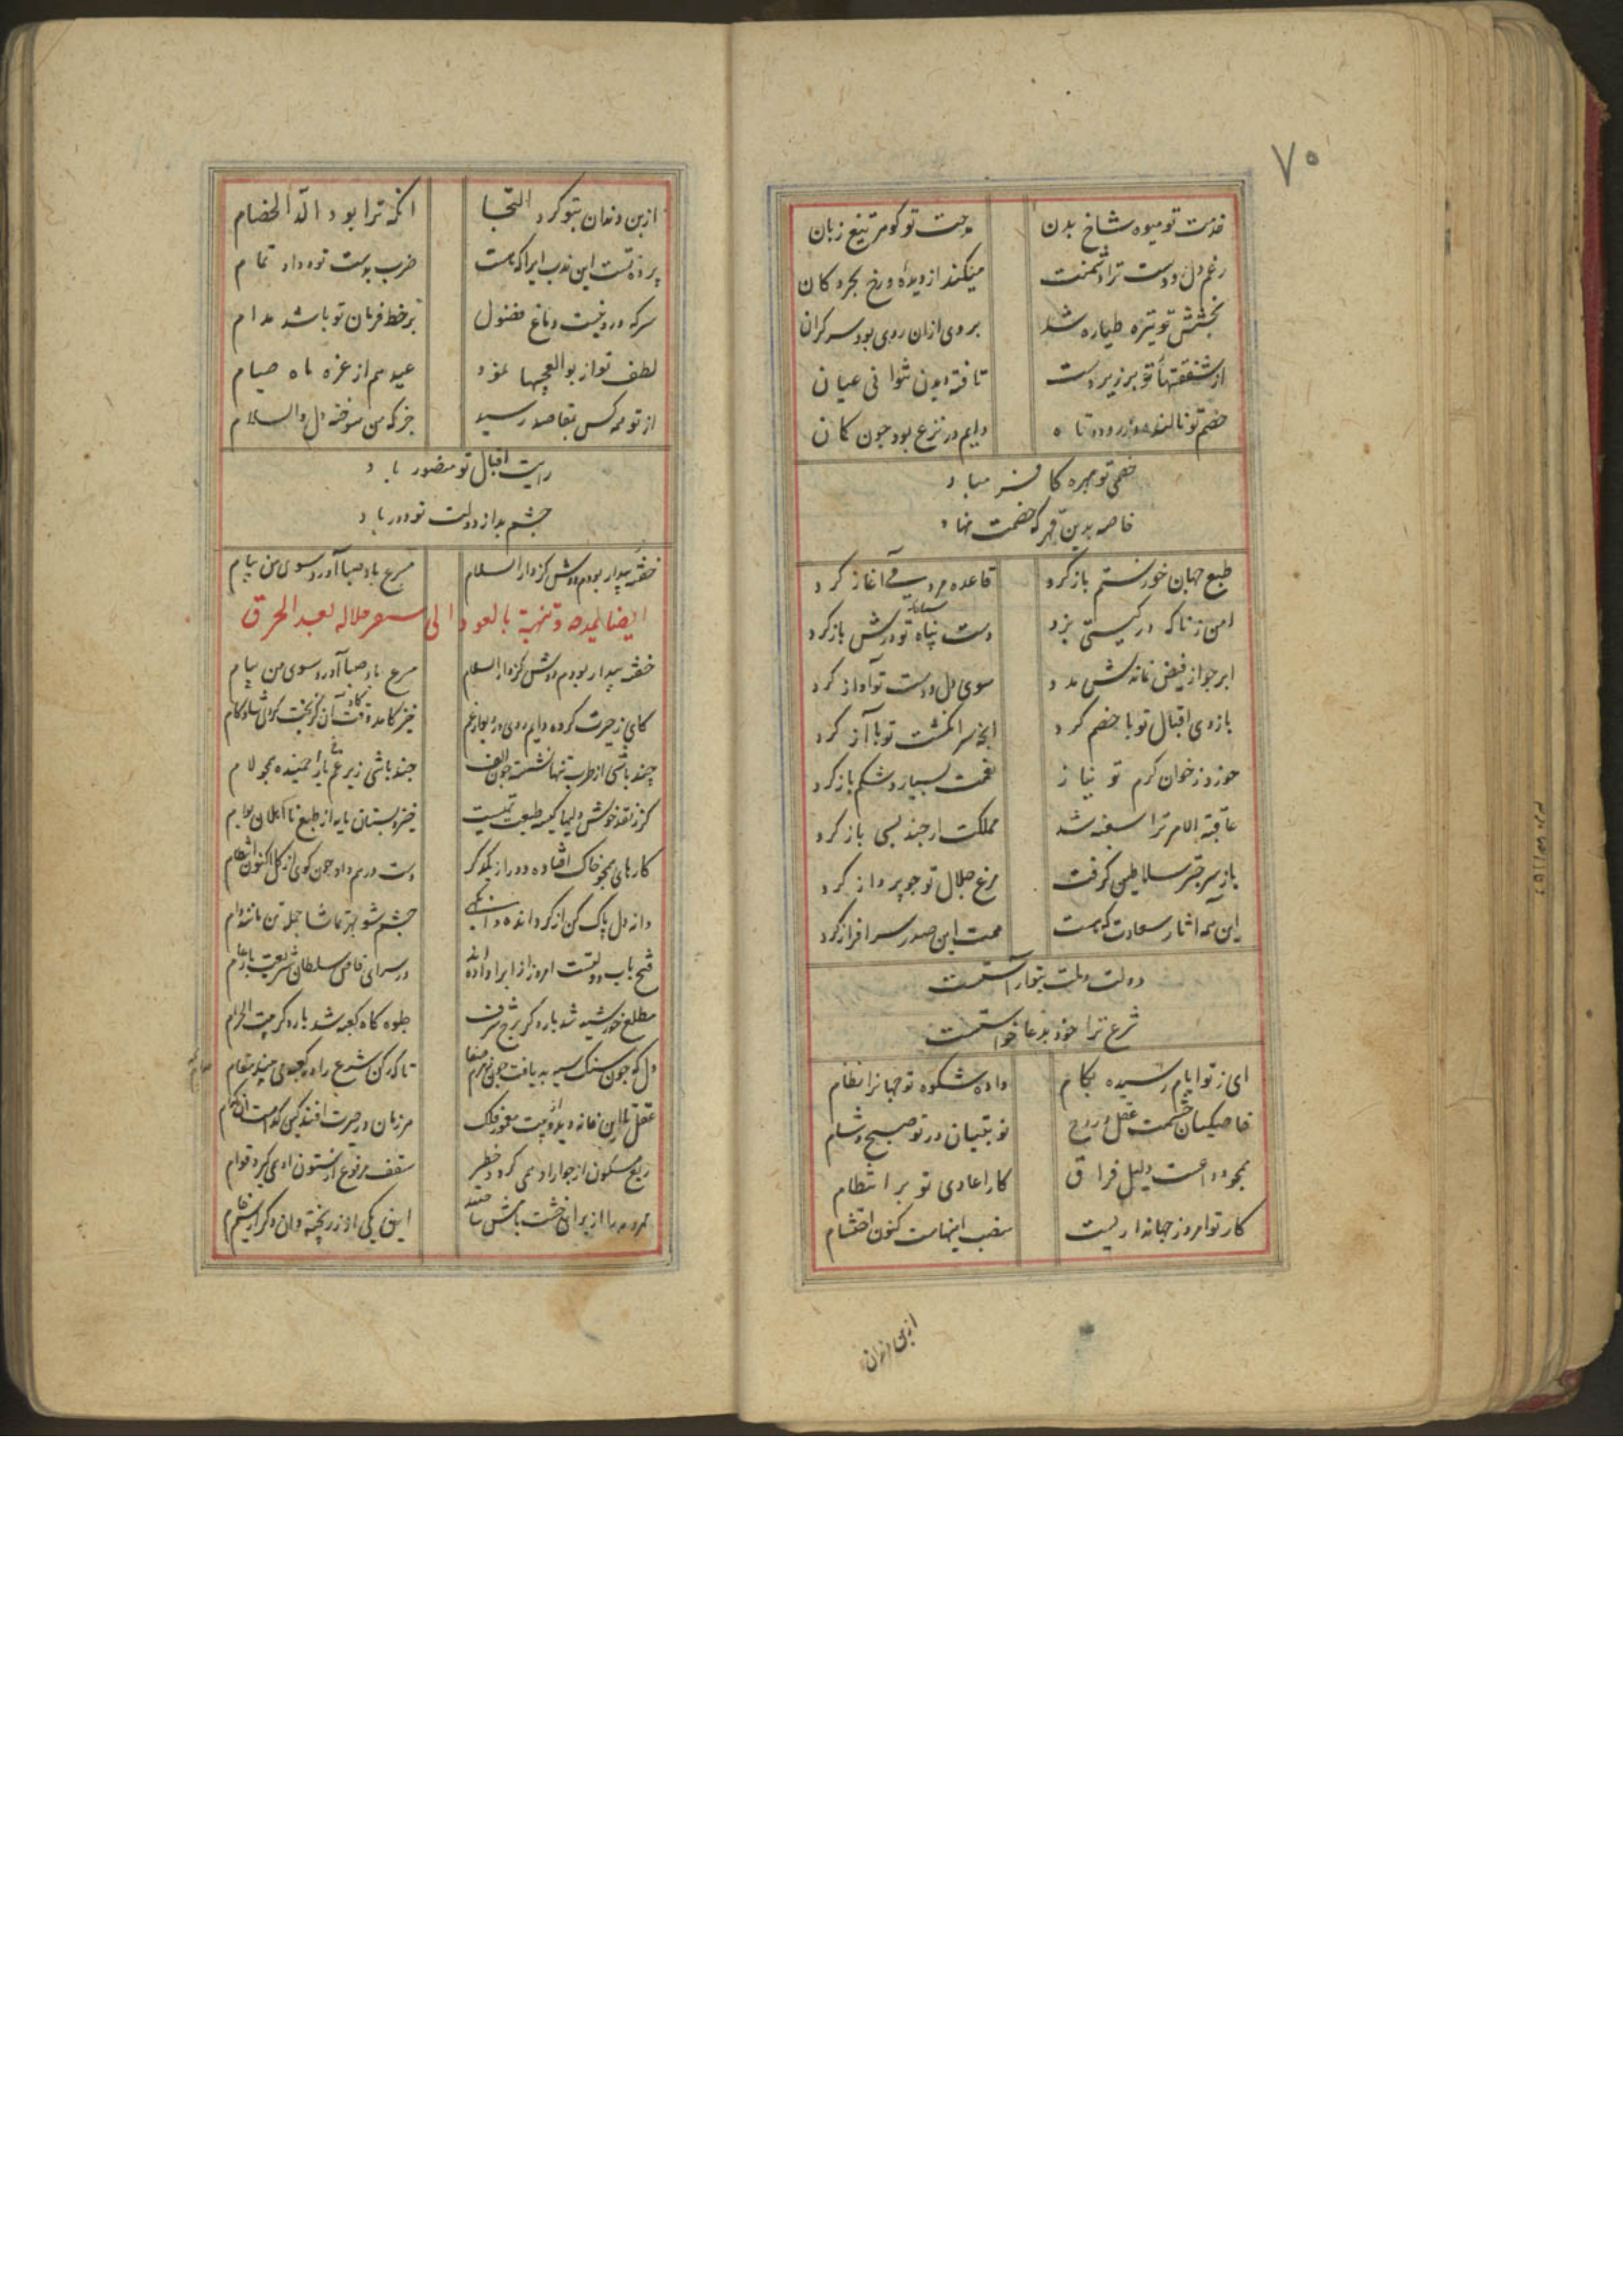 ۷۰
خدمت تو میوه شاخ بدن
مدحت تو گوهر تیغ زبان
رغم دل و دست ترا دشمنت
میکند از دیده و رخ بحر و کان
بخشش تو تیره طیاره شد
بروی ازان روی بود سر کران
از شفقتهاء تو بر زیردست
تافته دیدن نتوانی عیان
خصم تو نالنده زرود تباه
دایم در نزع بود چون کمان
خصمی تو مهره کافر مباد
خاصه بدین قهر که خصمت نهاد
طبع جهان خوی ستم باز کرد
قاعده مردمی آغاز کرد
امن ز ناگه در گیتی بزد
دست پناه تو درش باز کرد
ابر جو از فیض نماندش مدد
سوی دل و دست تو آواز کرد
بازوی اقبال تو با خصم کرد
انچه سر انگشت تو با آز کرد
خورد ز خوان کرم تو نیاز
نعمت بسیار و شکم باز کرد
عاقبة الامر ترا سغبه شد
مملکت ار چند بسی ناز کرد
باز سر چتر سلاطین گرفت
مرغ جلال تو چو پرواز کرد
این همه اثار سعادت که هست
محبت این صدر سرافراز کرد
دولت و ملت بتو آراستست
شرع ترا خود بدعا خواستست
ای ز تو ایام رسیده بکام
داده شکوه تو جهانرا نظام
خاصگیان خدمت عقل و روح
نوبتیان در تو صبح و شام
کار اعادی تو بر انتظام
کار تو امروز جهانداریست
منصب اینهاست کنون احتشام
از بن دندان
از بن دندان بتو کرد التجا
انکه ترا بود الدّ الخصام
پرده تست این ندب ایرا که هست
ضرب بدست تو و داو تمام
سر که درو نیست دماغ فضول
بر خط فرمان تو باشد مدام
لطف تو از بوالعجبیها نمود
عید هم از غره ماه صیام
از تو همه کس بمقاصد رسید
جز که من سوخته دل والسلام
رایت اقبال تو منصور باد
چشم بد از دولت تو دور باد
خفته بیدار بودم دوش کز دار السلام
مسرع باد صبا آورد سوی من پیام
ایضا یمدحه و تهنیة بالعود الی سعر جلاله بعد الحرق
خفته بیدار بودم دوش کز دار السلام
مسرع باد صبا آورد سوی من پیام
کای ز حیرت کرده دایم روی در دیوار غم
خیز کامد وقت آن کز بخت گردی شادکام
چند باشی از طرب تنها نشسته چون الف
چند باشی زیر غم یارا خمیده همچو لام
گر ز نقد خوش دلیها کیسه طبعت تهیست
خیز و بستان مایه از طبع نااهلان بوام
کارهای همچو خاک افتاده دور از یکدگر
دست در هم داد چون گوی از گل اکنون انتظام
چشم شو بهر تماشا جمله تن مانند دام
فتح باب دولتست امروز از ایرا داده اند
در سرای قاضی سلطان شریعت بار عام
مطلع خورشید شد بار دگر برج شرف
جلوه گاه کعبه شد بار دگر بیت الحرام
دل که چون سنگ سیه بد یافت چون زمزم صفا
تا که رکن شرع را در کعبه می بیند مقام
عقل تا این خانه دید و بیت معمور فلک
هر زمان در حیرت افتد کین کدامست آن کدام
ربع مسکون از جوار او همی گردد خطیر
سقف مرفوع از ستون او همی گیرد قوام
مهر و مه را از برای خشت بامش ساختند
این یکی از زر پخته وان دگر از سیم خام